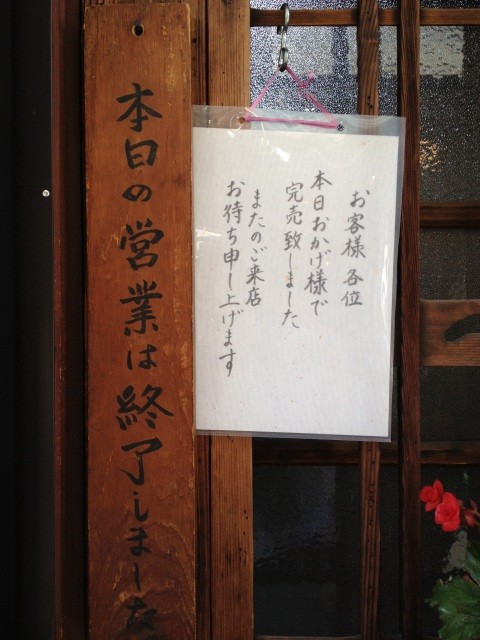 お客様各位
本日おかげ様で
完売致しました
またのご来店
お待ち申し上げます
本日の営業は終了しました